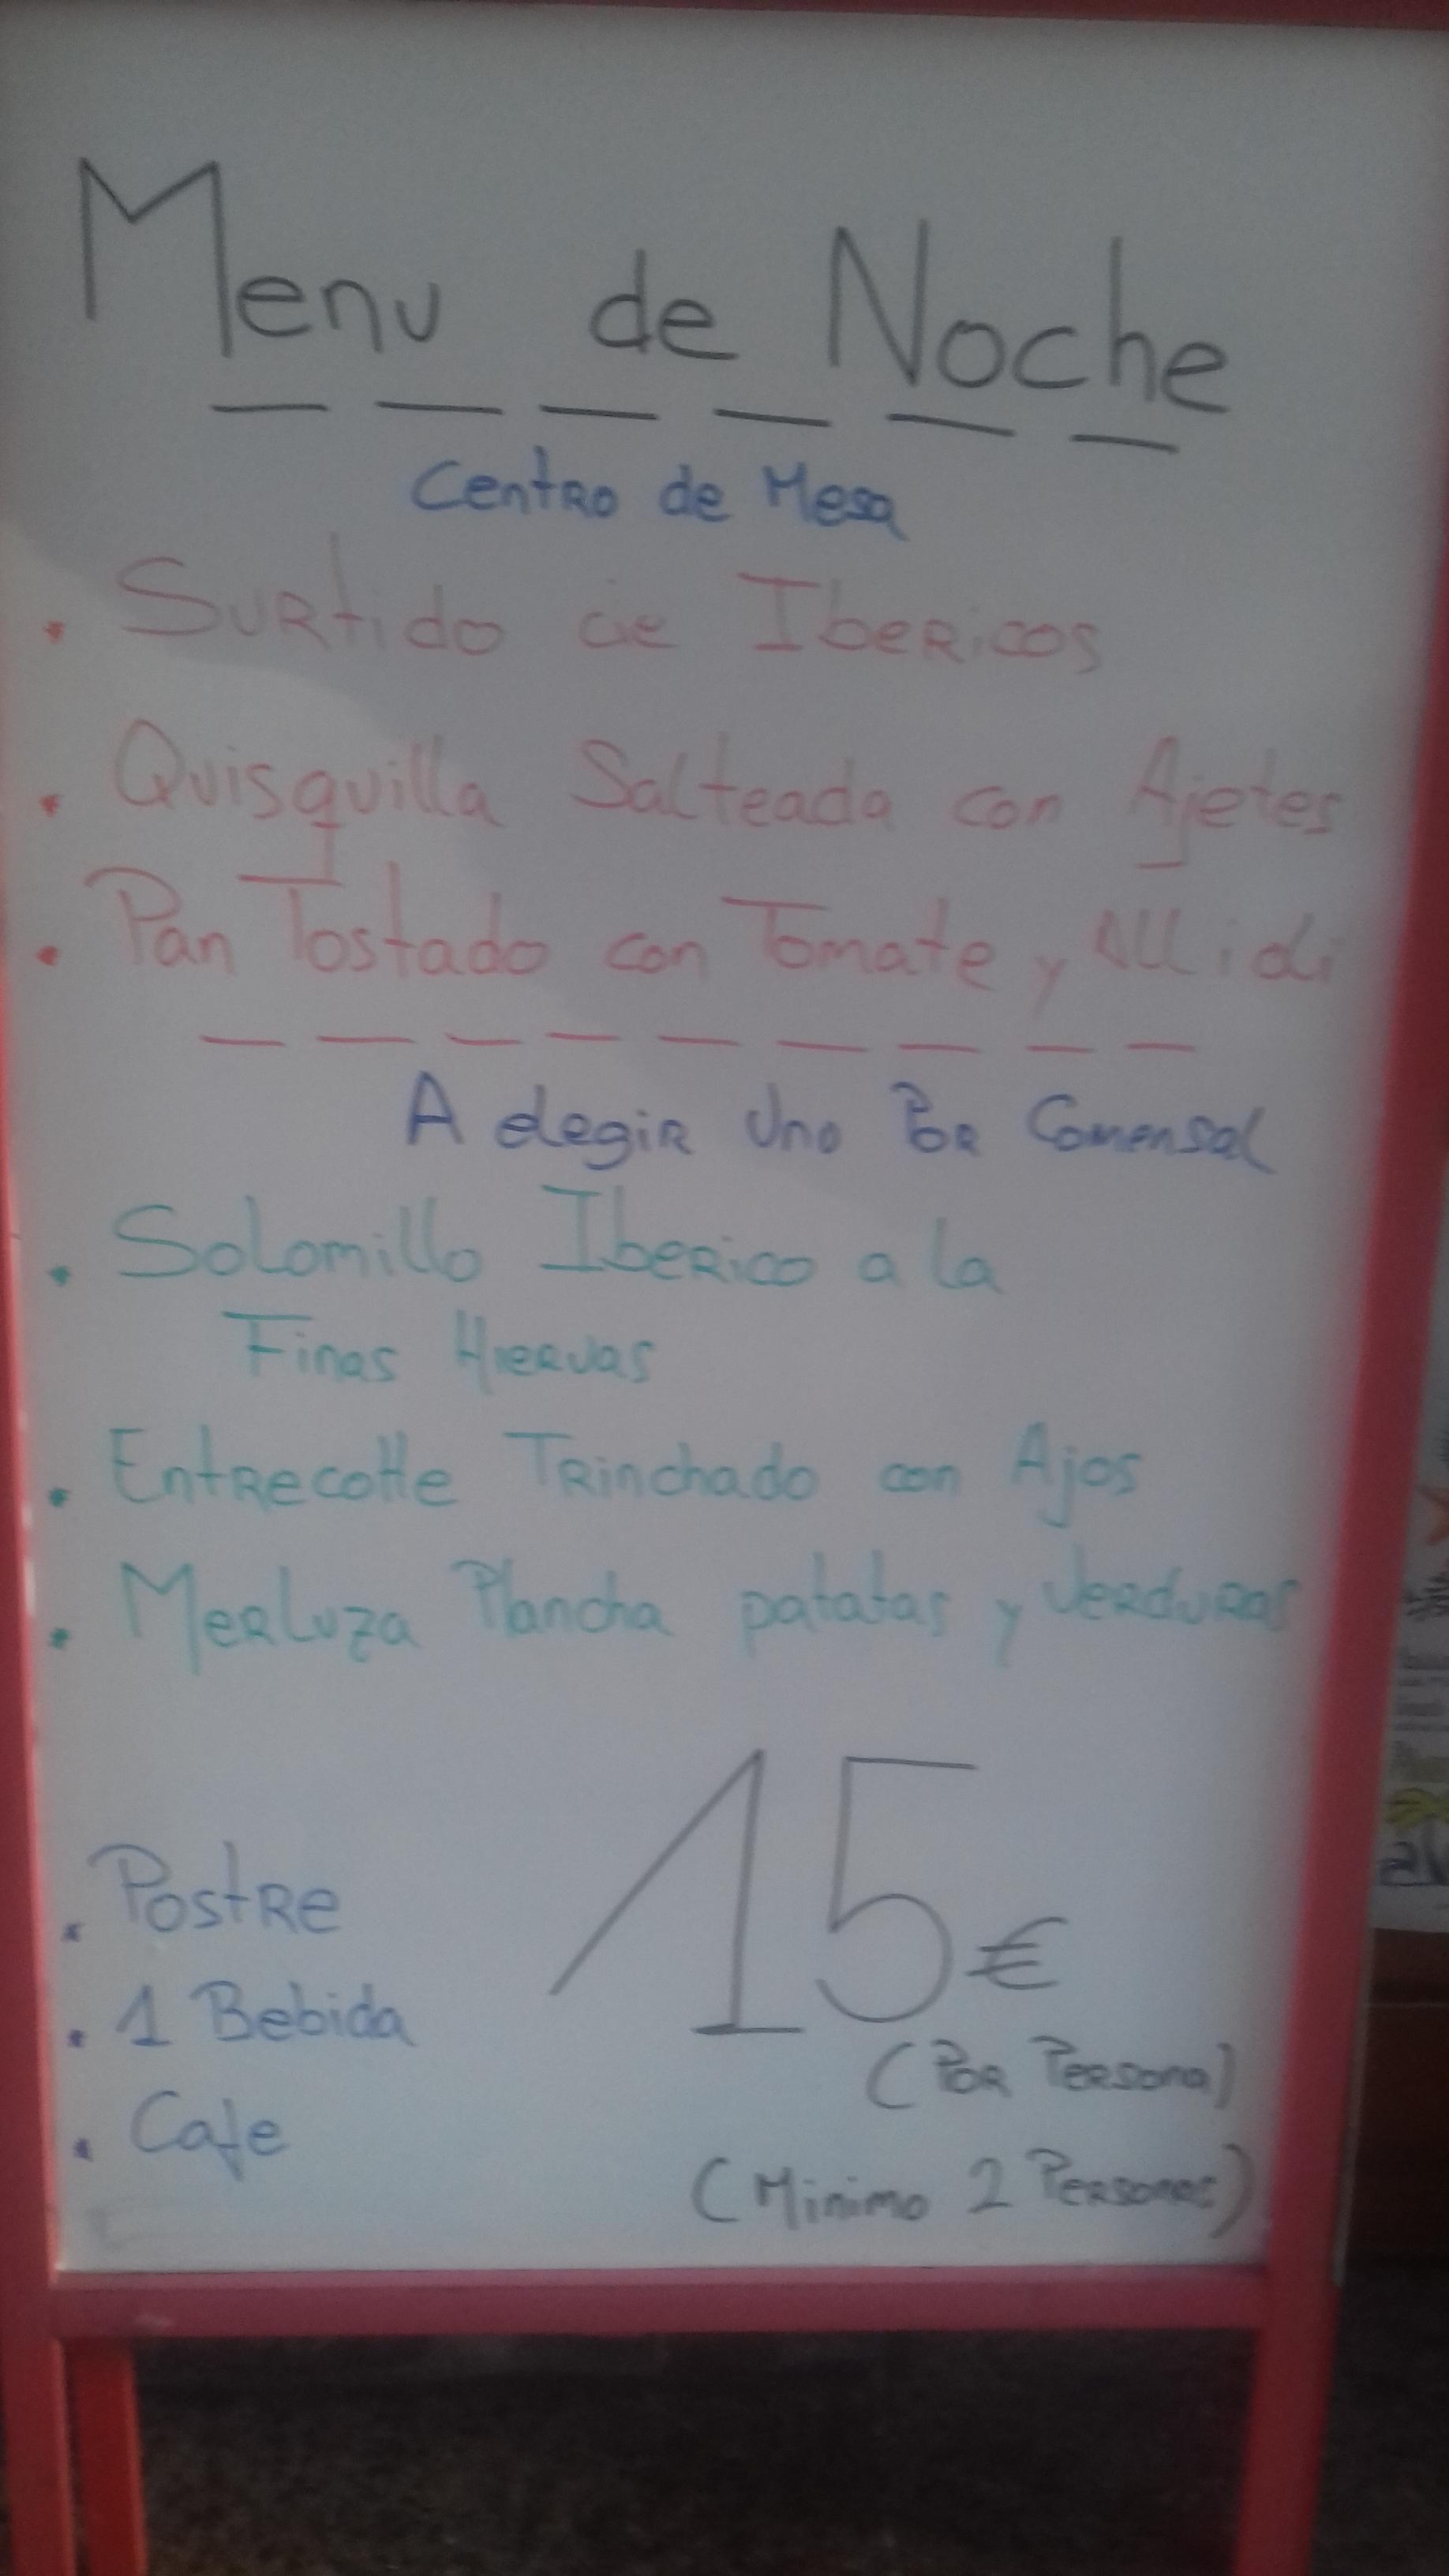 Menu de Noche
Centro de Mesa
. Surtido de Ibericos
. Quisquilla Salteada con Ajetes
. Pan Tostado con Tomate y
A elegir Uno Por Comensal
. Solomillo Iberico a la
Finas Hiervas
. Entrecotte Trinchado con Ajos
. Merluza Plancha patatas y Verduras
. Postre
15€
. 1 Bebida
(Por Persona)
. Cafe
(Minimo 2 Personas)